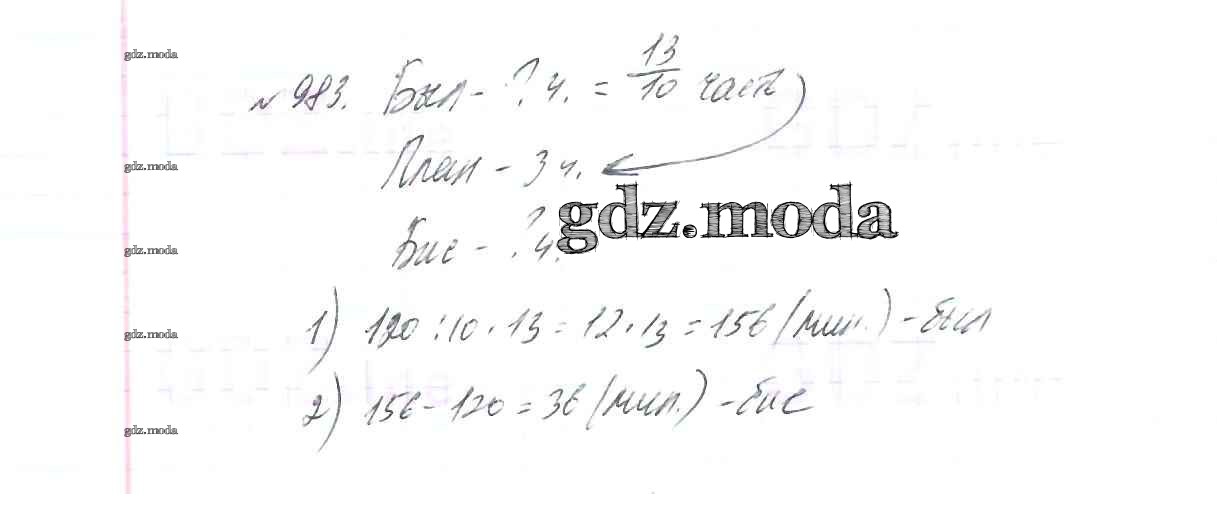 gdz.moda
№983. Был - ? ч. = 13/10 часть
gdz.moda
План - 3 ч.
gdz.moda
Бис - ? ч.
gdz.moda
1) 120 : 10 · 13 = 12 · 13 = 156 (мин.) - был
gdz.moda
2) 156 - 120 = 36 (мин.) - бис
gdz.moda
gdz.moda